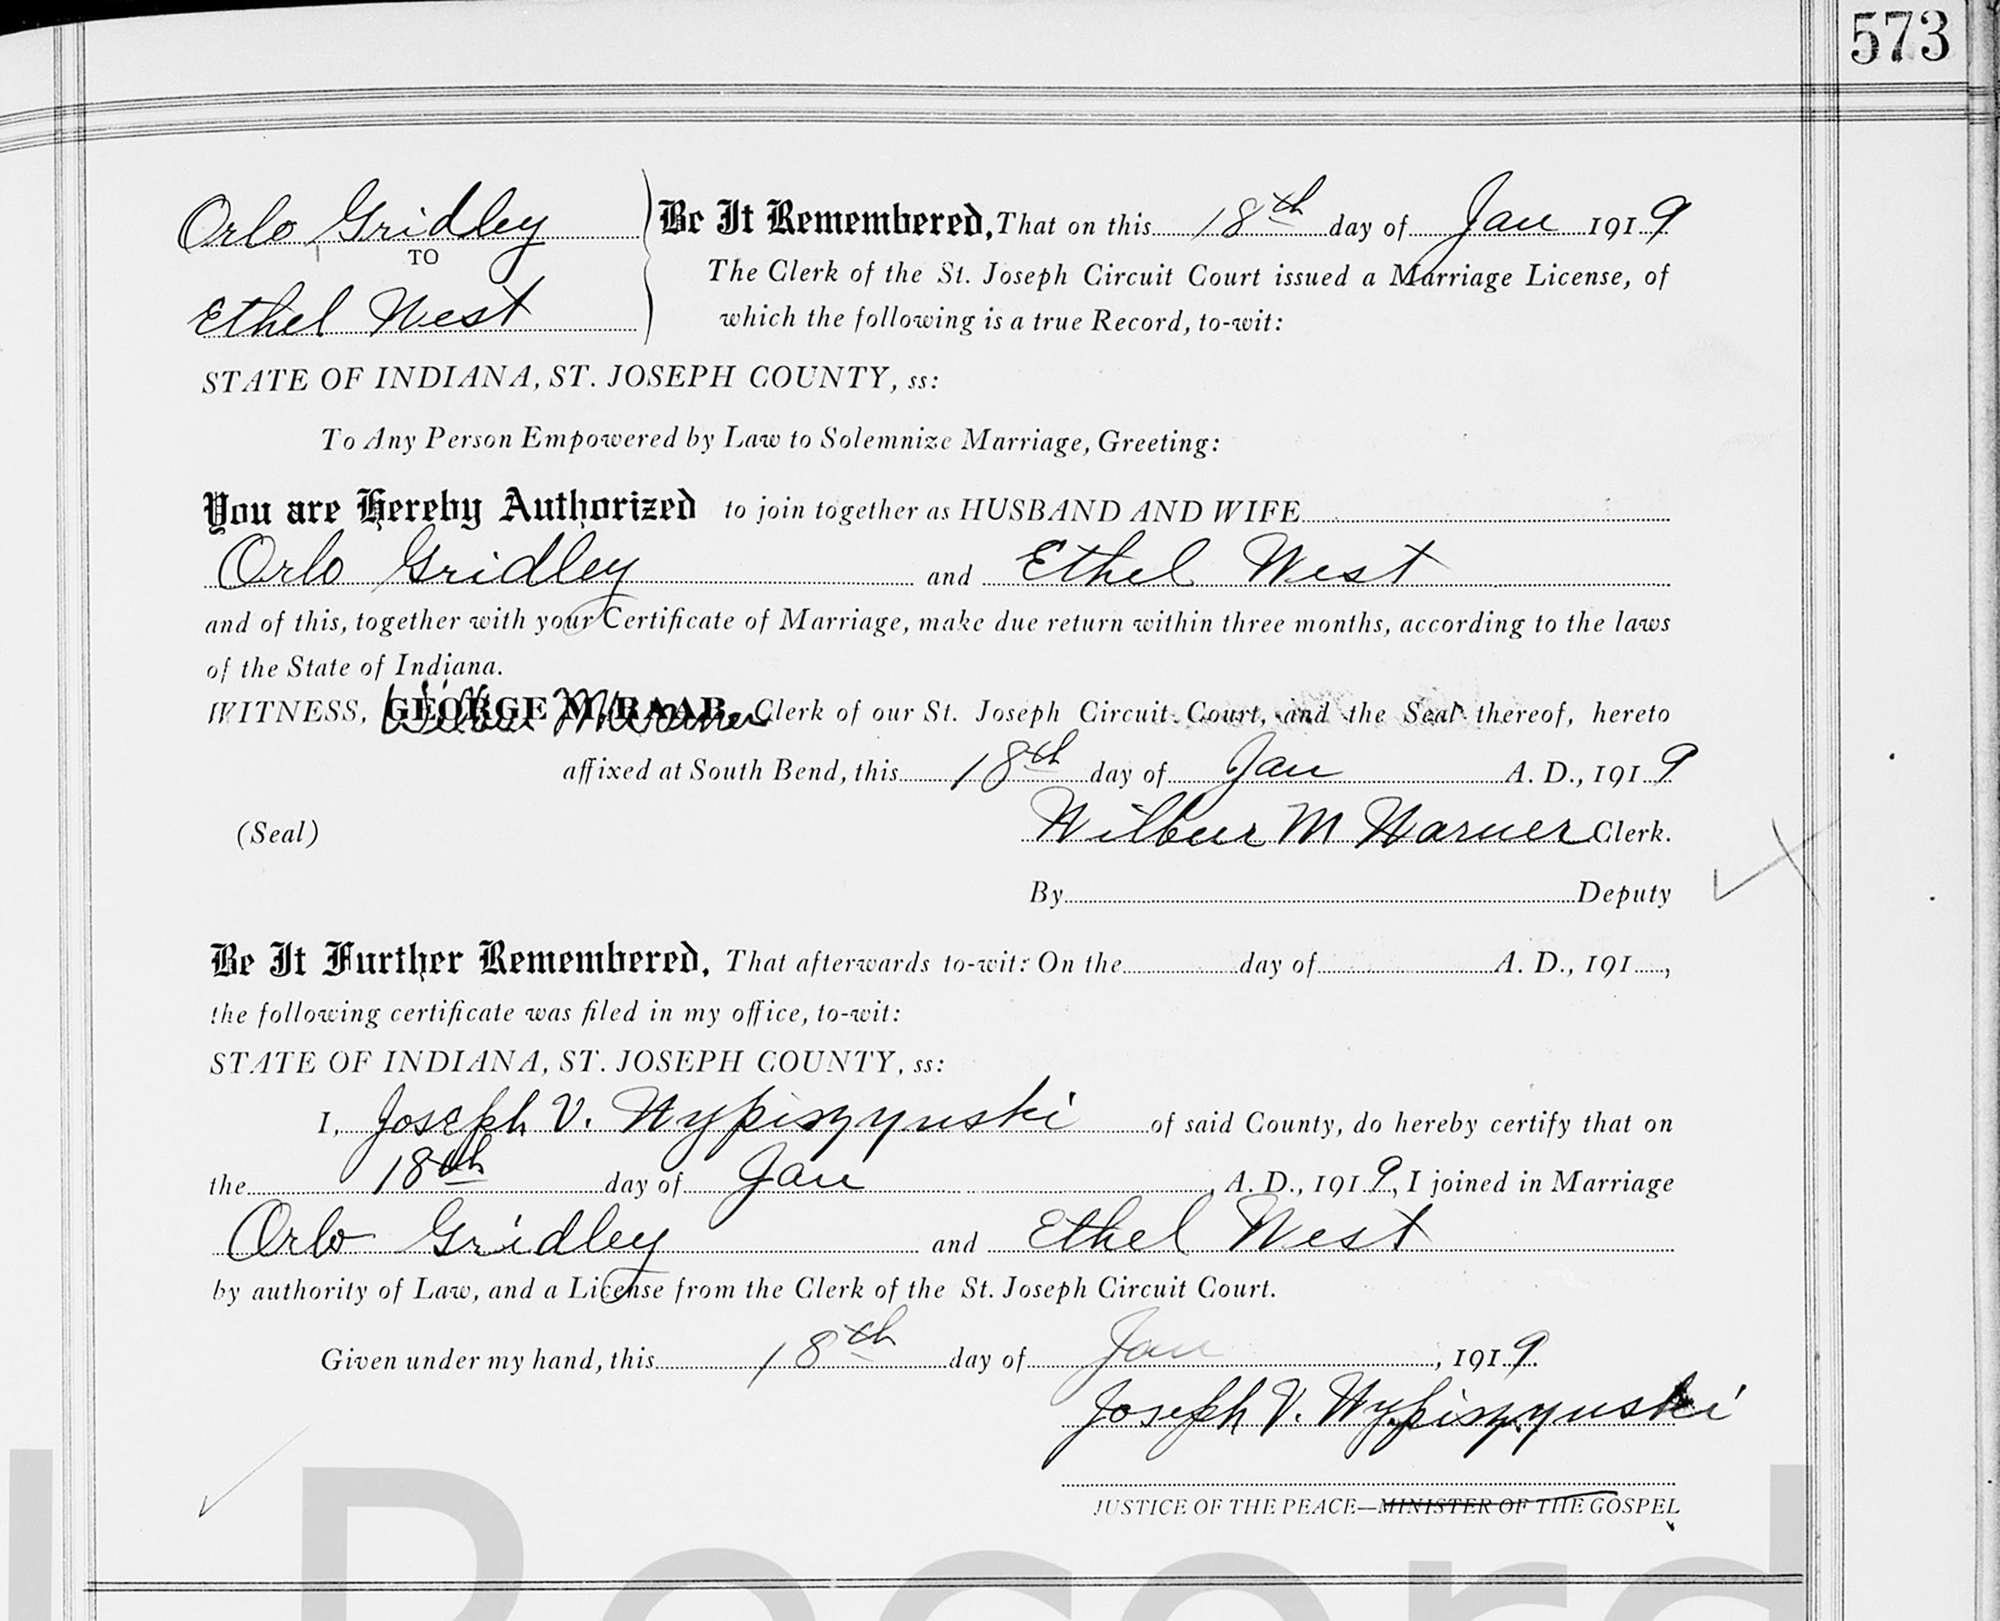 573
Orlo Gridley
TO
Ethel West
Be It Remembered, That on this 18th day of Jan 1919
The Clerk of the St. Joseph Circuit Court issued a Marriage License, of
which the following is a true Record, to-wit:
STATE OF INDIANA, ST. JOSEPH COUNTY, ss:
To Any Person Empowered by Law to Solemnize Marriage, Greeting:
You are Hereby Authorized to join together as HUSBAND AND WIFE
Orlo Gridley and Ethel West
and of this, together with your Certificate of Marriage, make due return within three months, according to the laws
of the State of Indiana.
WITNESS, GEORGE M. RAAB, Wilbur M Warner Clerk of our St. Joseph Circuit Court, and the Seal thereof, hereto
affixed at South Bend, this 18th day of Jan A. D., 1919
(Seal) Wilbur M Warner Clerk.
By Deputy
Be It Further Remembered, That afterwards to-wit: On the day of A. D., 191 ,
the following certificate was filed in my office, to-wit:
STATE OF INDIANA, ST. JOSEPH COUNTY, ss:
I, Joseph V. Wypiszynski of said County, do hereby certify that on
the 18th day of Jan , A. D., 1919, I joined in Marriage
Orlo Gridley and Ethel West
by authority of Law, and a License from the Clerk of the St. Joseph Circuit Court.
Given under my hand, this 18th day of Jan , 1919.
Joseph V. Wypiszynski
JUSTICE OF THE PEACE—MINISTER OF THE GOSPEL